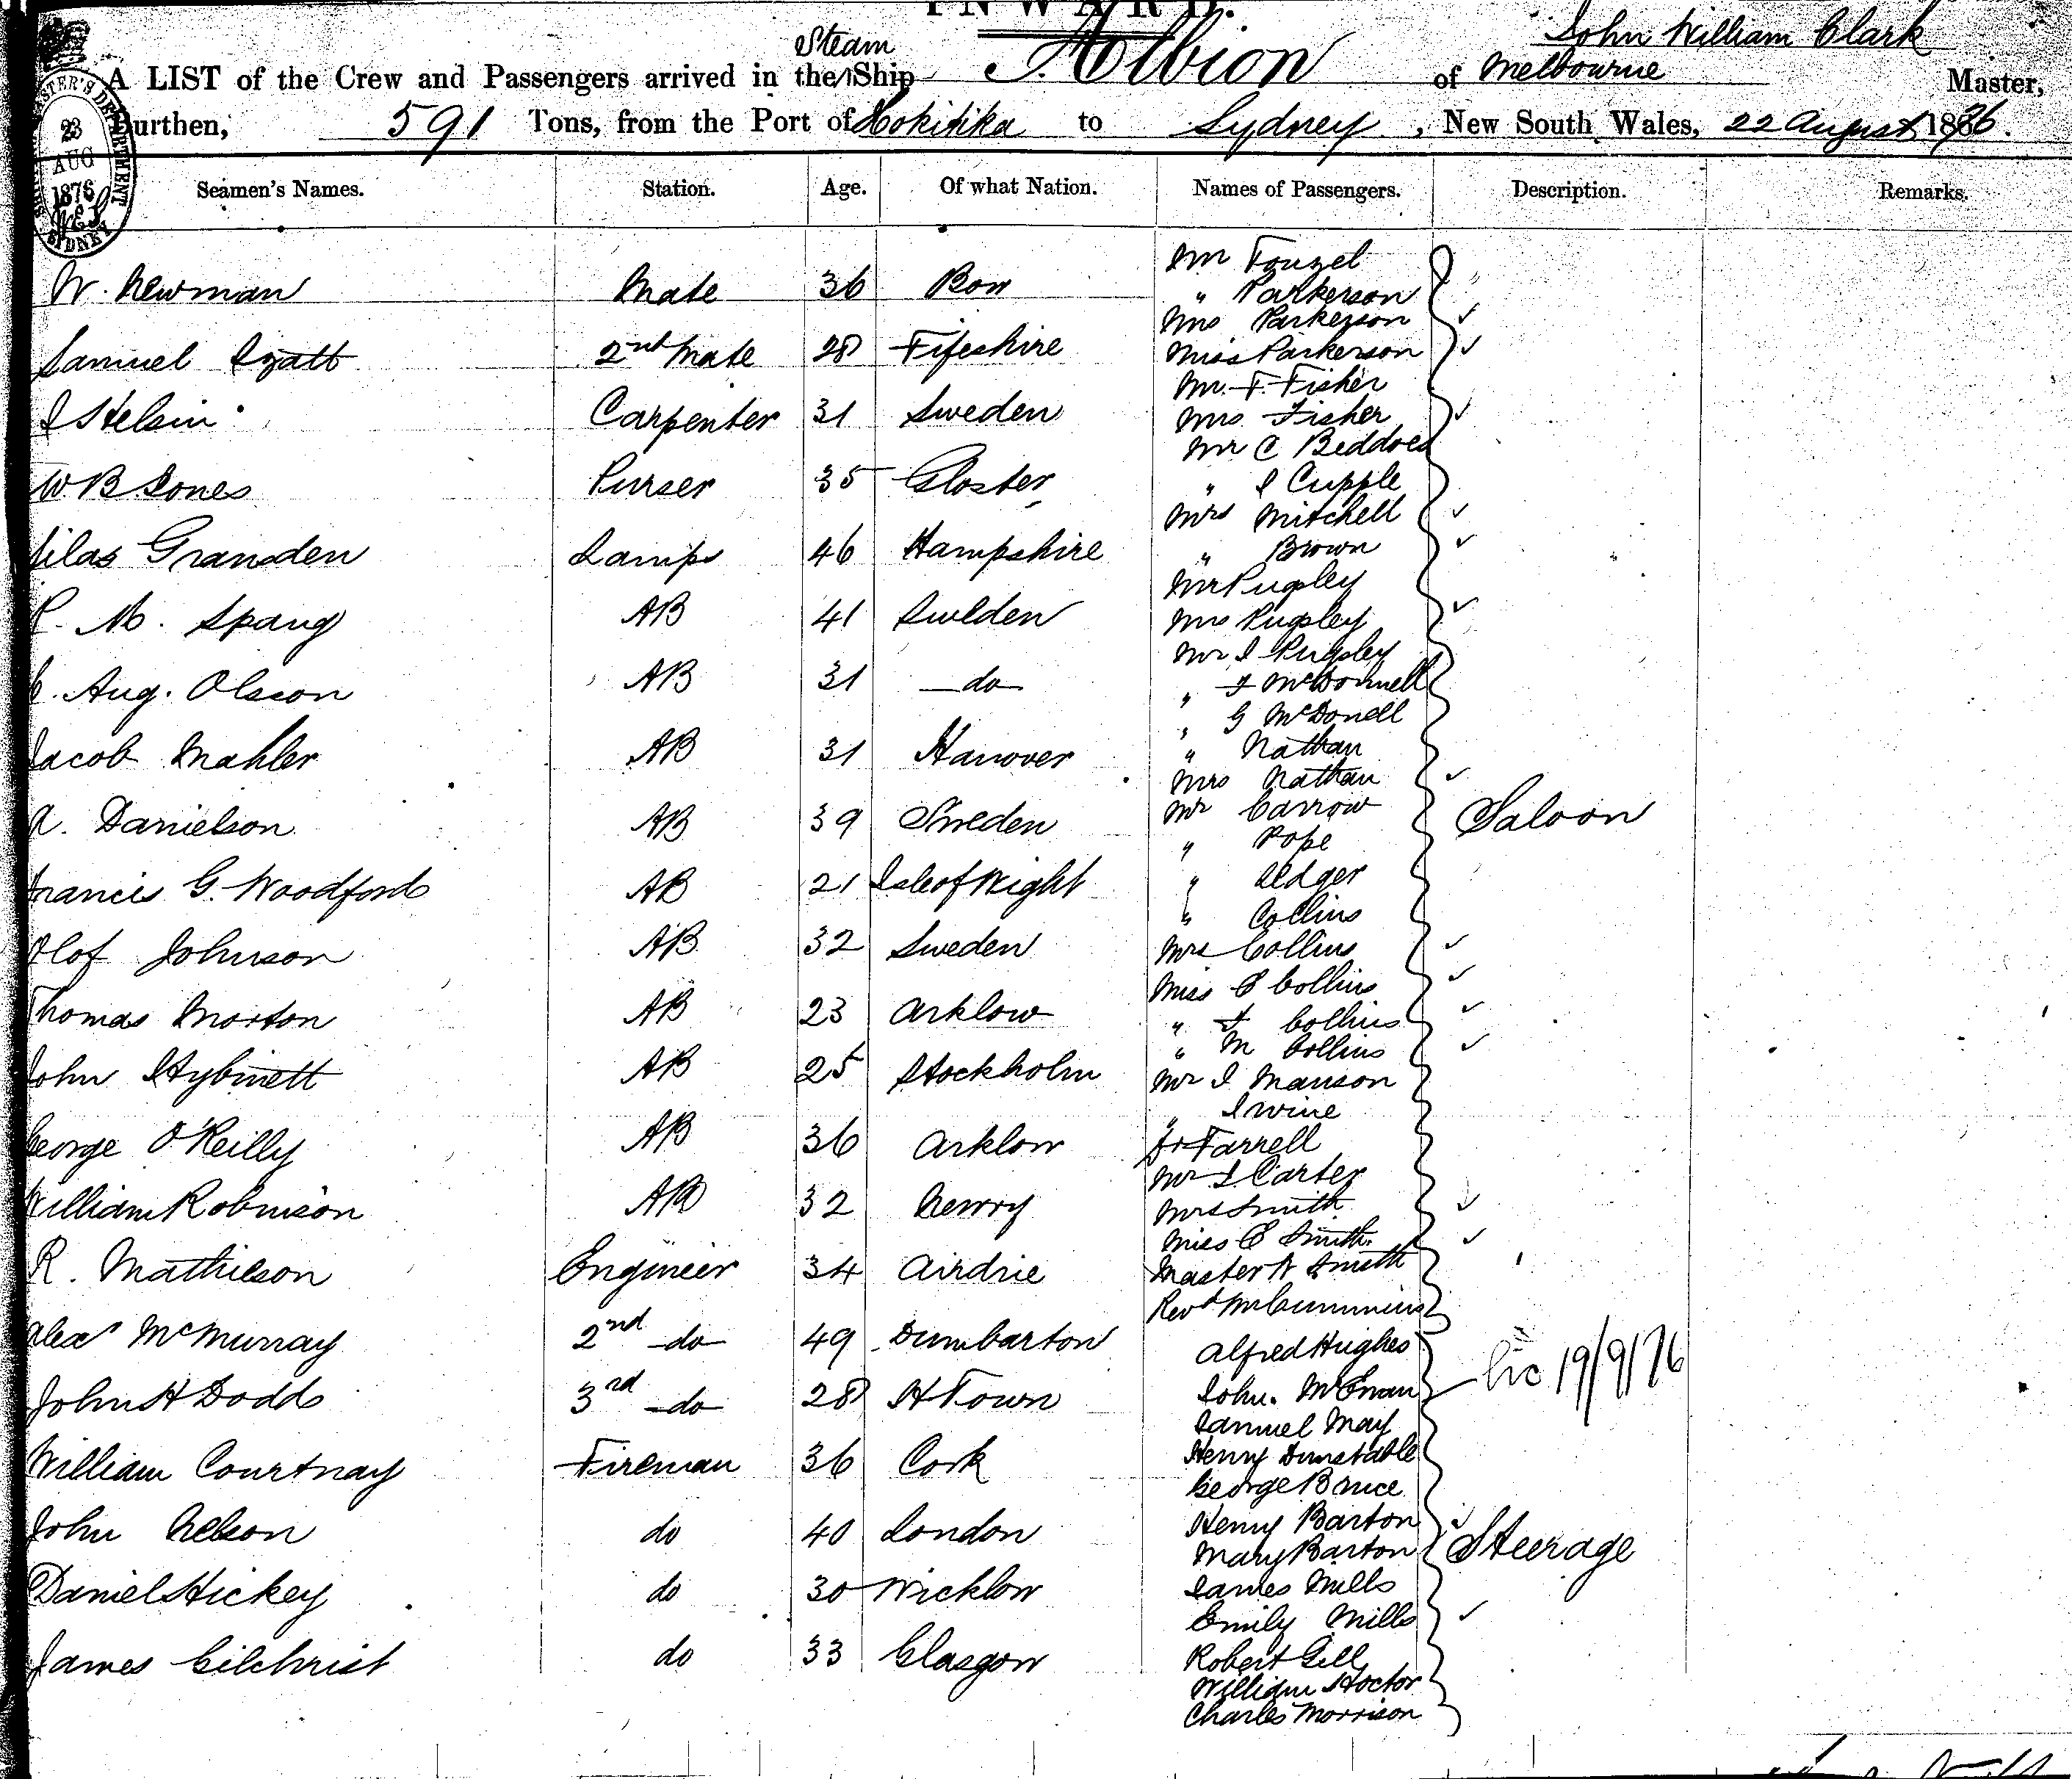 INWARD.
John William Clark
A LIST of the Crew and Passengers arrived in the Steam Ship Albion of Melbourne Master,
Burthen, 591 Tons, from the Port of Hokitika to Sydney, New South Wales, 22 August 1876.
23
AUG
1876
SYDNEY
Seamen's Names. Station. Age. Of what Nation. Names of Passengers. Description. Remarks.
W. Newman Mate 36 Bow
Samuel Lyatt 2nd Mate 28 Fifeshire
Carpenter 31 Sweden
W B Jones Purser 35 Gloster
Silas Gransden Lamps 46 Hampshire
P. M. Spang AB 41 Sweden
C. Aug. Olsson AB 31 do
Jacob Mahler AB 31 Hanover
A. Danielson AB 39 Sweden
Francis G. Woodford AB 21 Isle of Wight
Olof Johnson AB 32 Sweden
Thomas Morton AB 23 Arklow
John Hybinett AB 25 Stockholm
George O'Reilly AB 36 Arklow
William Robinson AB 32 Newry
R. Mathieson Engineer 34 Airdrie
Alexr McMurray 2nd do 49 Dumbarton
John H Dodds 3rd do 28 H Town
William Courtnay Fireman 36 Cork
John Nelson do 40 London
Daniel Hickey do 30 Wicklow
James Gilchrist do 33 Glasgow
Mr Fouzel
" Parkerson
Mrs Parkerson
Miss Parkerson
Mr. F. Fisher
Mrs Fisher
Mr C Beddoes
" J Cupple
Mrs Mitchell
" Brown
Mr Pugsley
Mrs Pugsley
Mr J Pugsley
" F McDonnell
" G McDonell
" Nathan
Mrs Nathan
Mr Carrow
" Pope
" Ledger
" Collins
Mrs Collins
Miss E Collins
" F Collins
" M Collins
Mr J Manson
" Irwine
Dr Farrell
Mr J Carter
Mrs Smith
Miss E Smith
Master W Smith
Revd Mr Cummins
Saloon
Alfred Hughes
John McEnan
Samuel May
Henry Dunstable
George Bruce
Henry Barton
Mary Barton
James Mills
Emily Mills
Robert Gill
William Hoctor
Charles Morrison
19/9/76
Steerage